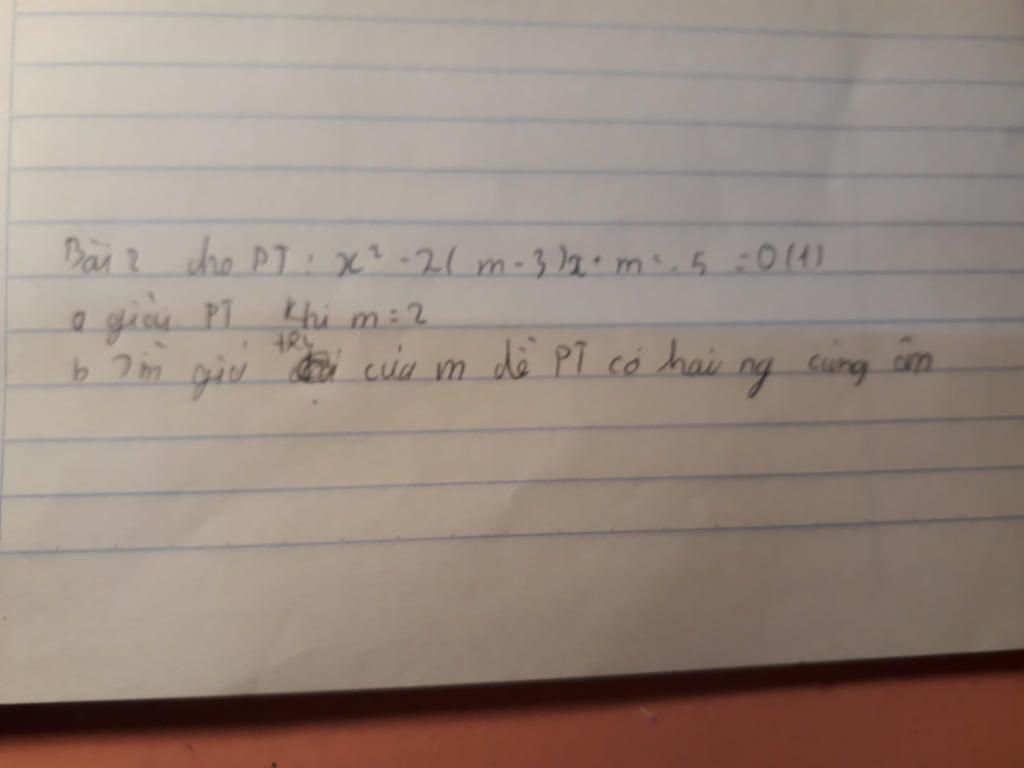 Bài 2 cho PT: x² - 2(m-3)x + m² - 5 = 0 (1)
a giải PT Khi m = 2
b Tìm giá trị của m để PT có hai ng cùng âm